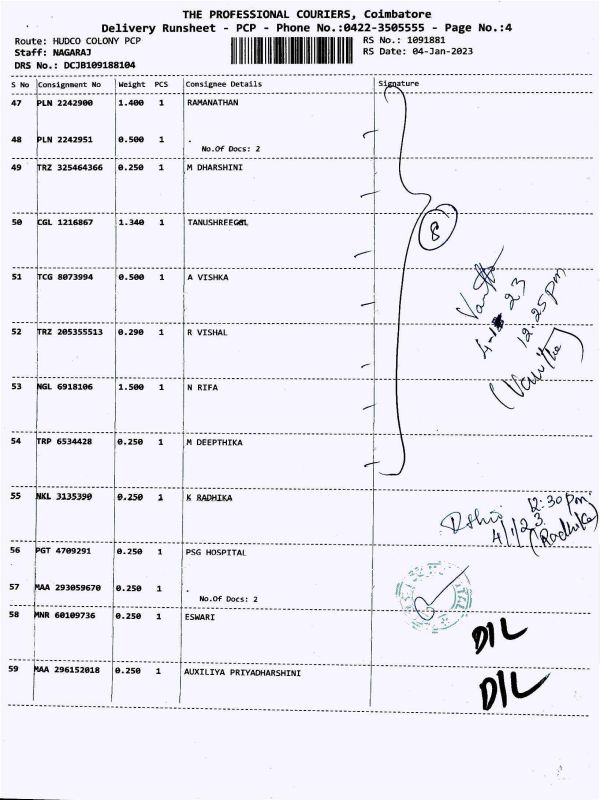 THE PROFESSIONAL COURIERS, Coimbatore
Delivery Runsheet - PCP - Phone No.:0422-3505555 - Page No.:4
Route: HUDCO COLONY PCP RS No.: 1091881
Staff: NAGARAJ RS Date: 04-Jan-2023
DRS No.: DCJB109188104
S No Consignment No Weight PCS Consignee Details Signature
47 PLN 2242900 1.400 1 RAMANATHAN
48 PLN 2242951 0.500 1 .
No.Of Docs: 2
49 TRZ 325464366 0.250 1 M DHARSHINI
50 CGL 1216867 1.340 1 TANUSHREEGGL
8
51 TCG 8073994 0.500 1 A VISHKA
4-1-23
12:25pm
52 TRZ 205355513 0.290 1 R VISHAL
53 NGL 6918106 1.500 1 N RIFA
54 TRP 6534428 0.250 1 M DEEPTHIKA
55 NKL 3135390 0.250 1 K RADHIKA
12:30pm
4/1/23
(Radhika)
56 PGT 4709291 0.250 1 PSG HOSPITAL
57 MAA 293059670 0.250 1 .
No.Of Docs: 2
58 MNR 60109736 0.250 1 ESWARI
D/L
59 MAA 296152018 0.250 1 AUXILIYA PRIYADHARSHINI
D/L